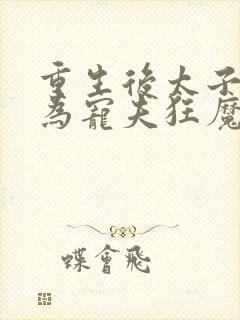 重生後太子
為寵夫狂魔
蝶會飛